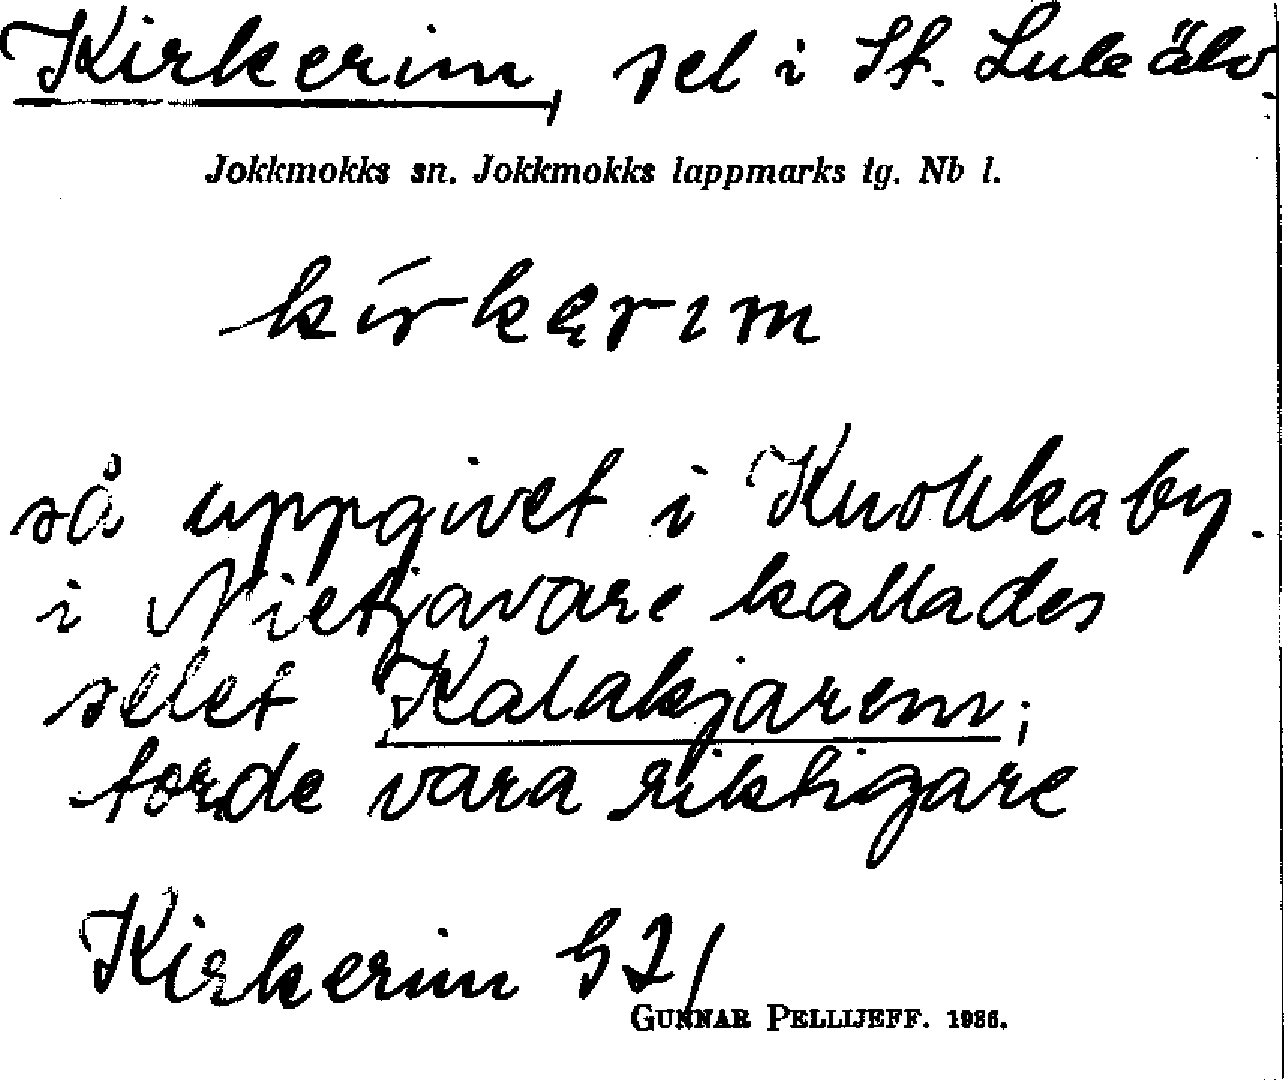 Kirkerim, sel i St. Lule älv.
Jokkmokks sn. Jokkmokks lappmarks tg. Nb l.
kírkęrım
så uppgivet i Knokkaby.
i Nietjavare kallades
selet Kalakjarem;
torde vara riktigare
Kirkerim
GUNNAR PELLIJEFF. 1936.